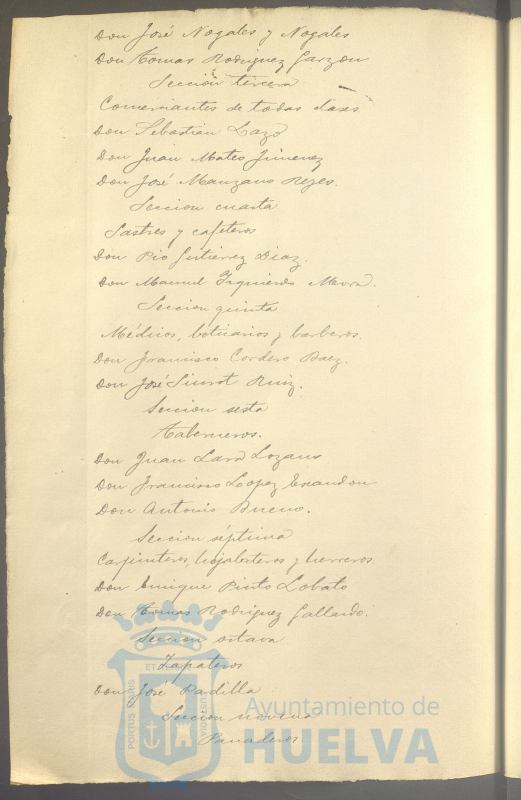 Don José Nogales y Nogales
Don Tomas Rodriguez Garzon
Seccion tercera
Comerciantes de todas clases
Don Sebastian Lazo
Don Juan Mateo Jimenez
Don José Manzano Reyes.
Seccion cuarta
Sastres y cafeteros
Don Pio Gutierrez Diaz.
Don Manuel Izquierdo Mora.
Seccion quinta
Médicos, boticarios y barberos.
Don Francisco Cordero Baez.
Don José Siurot Ruiz.
Seccion sesta
Taberneros.
Don Juan Lara Lozano
Don Francisco Lopez Escandon
Don Antonio Bueno.
Seccion séptima
Carpinteros, hojalateros y herreros.
Don Enrique Pinto Lobato
Don Tomas Rodriguez Gallardo.
Seccion octava
Zapateros
Don José Padilla
Seccion novena
Panaderos.
PORTUS MARIS ET TERRAE CUSTODIA
Ayuntamiento de
HUELVA